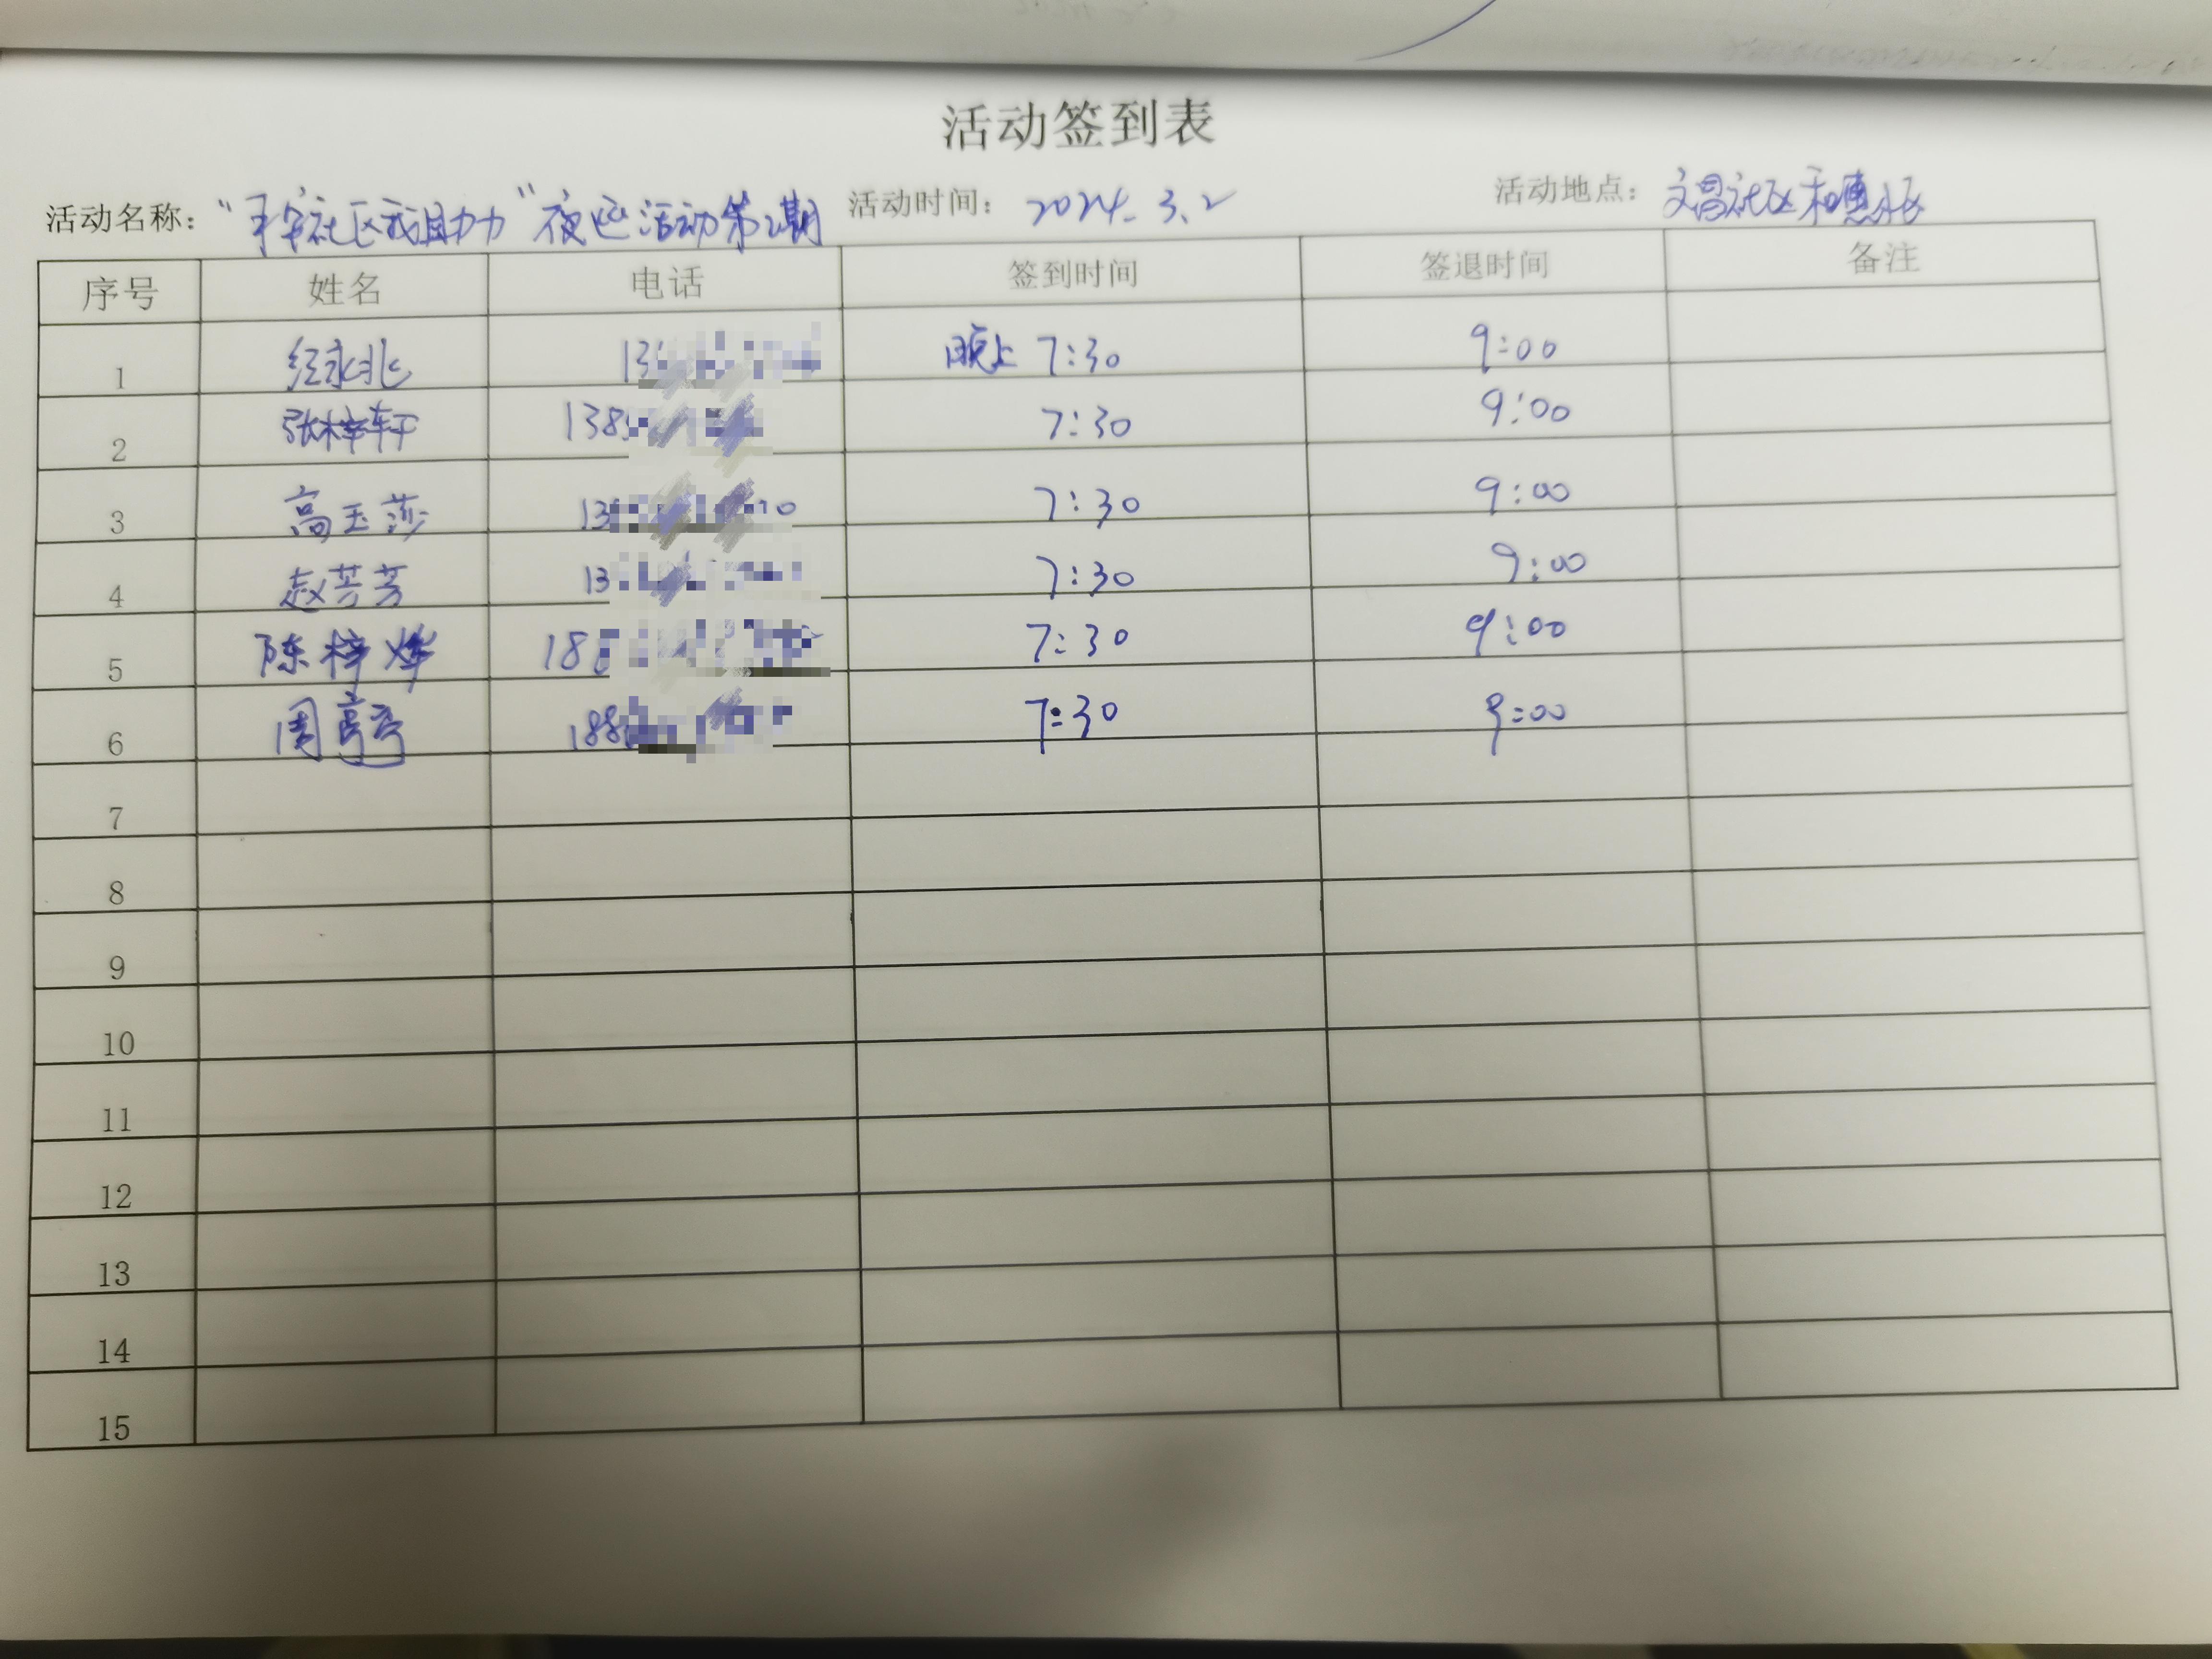 活动签到表
活动名称：“平安社区我助力”夜巡活动第2期 活动时间：2024.3.2 活动地点：文昌社区和惠小区
序号 姓名 电话 签到时间 签退时间 备注
1 经永兆 13 晚上 7:30 9:00
2 张梓轩 138 7:30 9:00
3 高玉莎 13 7:30 9:00
4 赵芳芳 13 7:30 9:00
5 陈梓烨 18 7:30 9:00
6 周亭亭 188 7:30 9:00
7
8
9
10
11
12
13
14
15